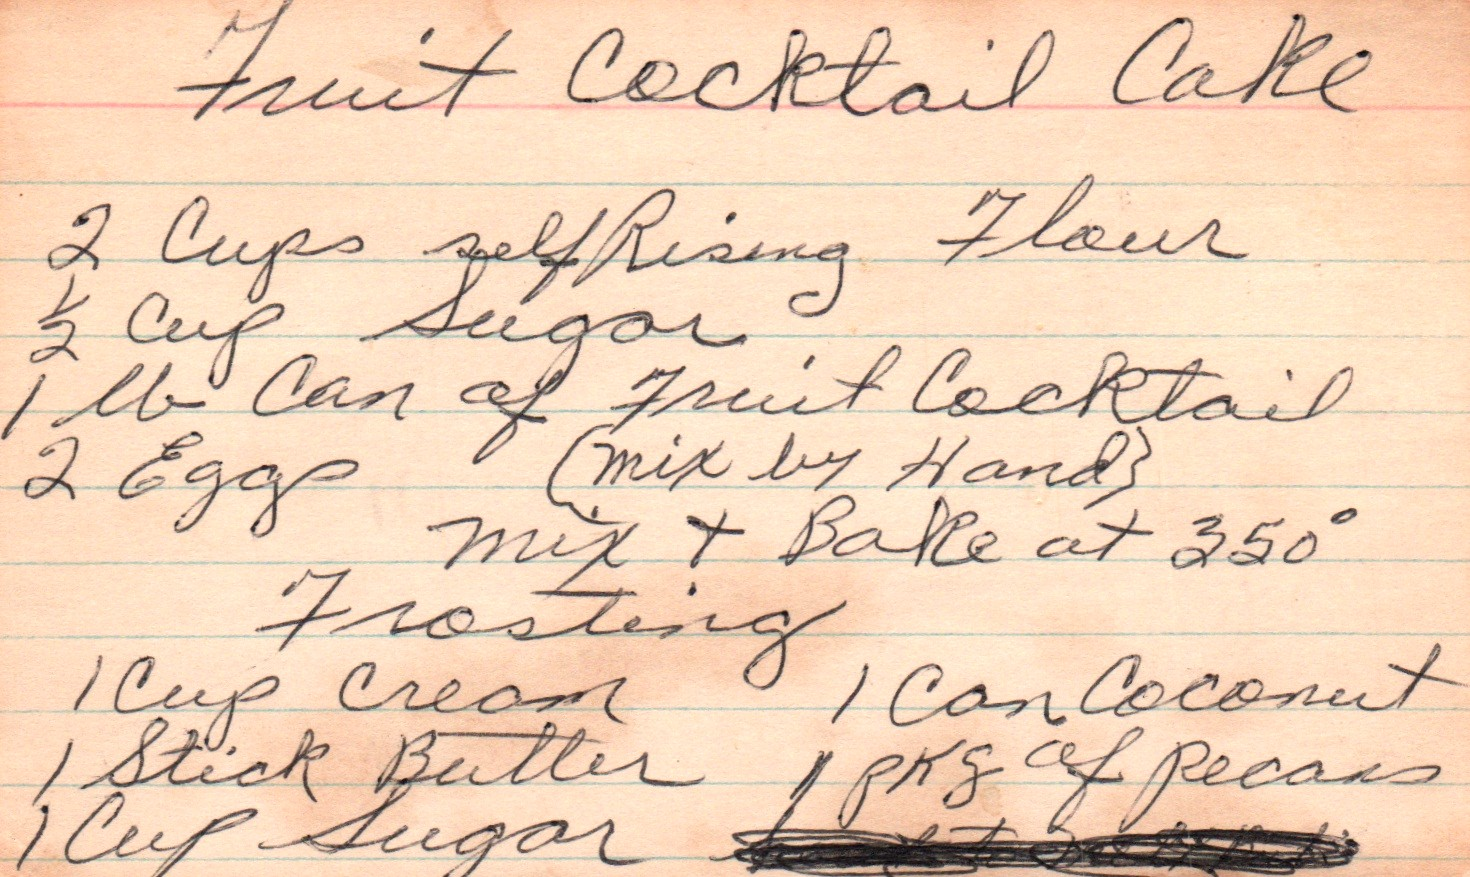 Fruit Cocktail Cake
2 Cups self Rising Flour
1/2 Cup Sugar
1 lb Can of Fruit Cocktail
2 Eggs {mix by Hand}
mix + Bake at 350°
Frosting
1 Cup Cream 1 Can Coconut
1 Stick Butter 1 pkg of pecans
1 Cup Sugar